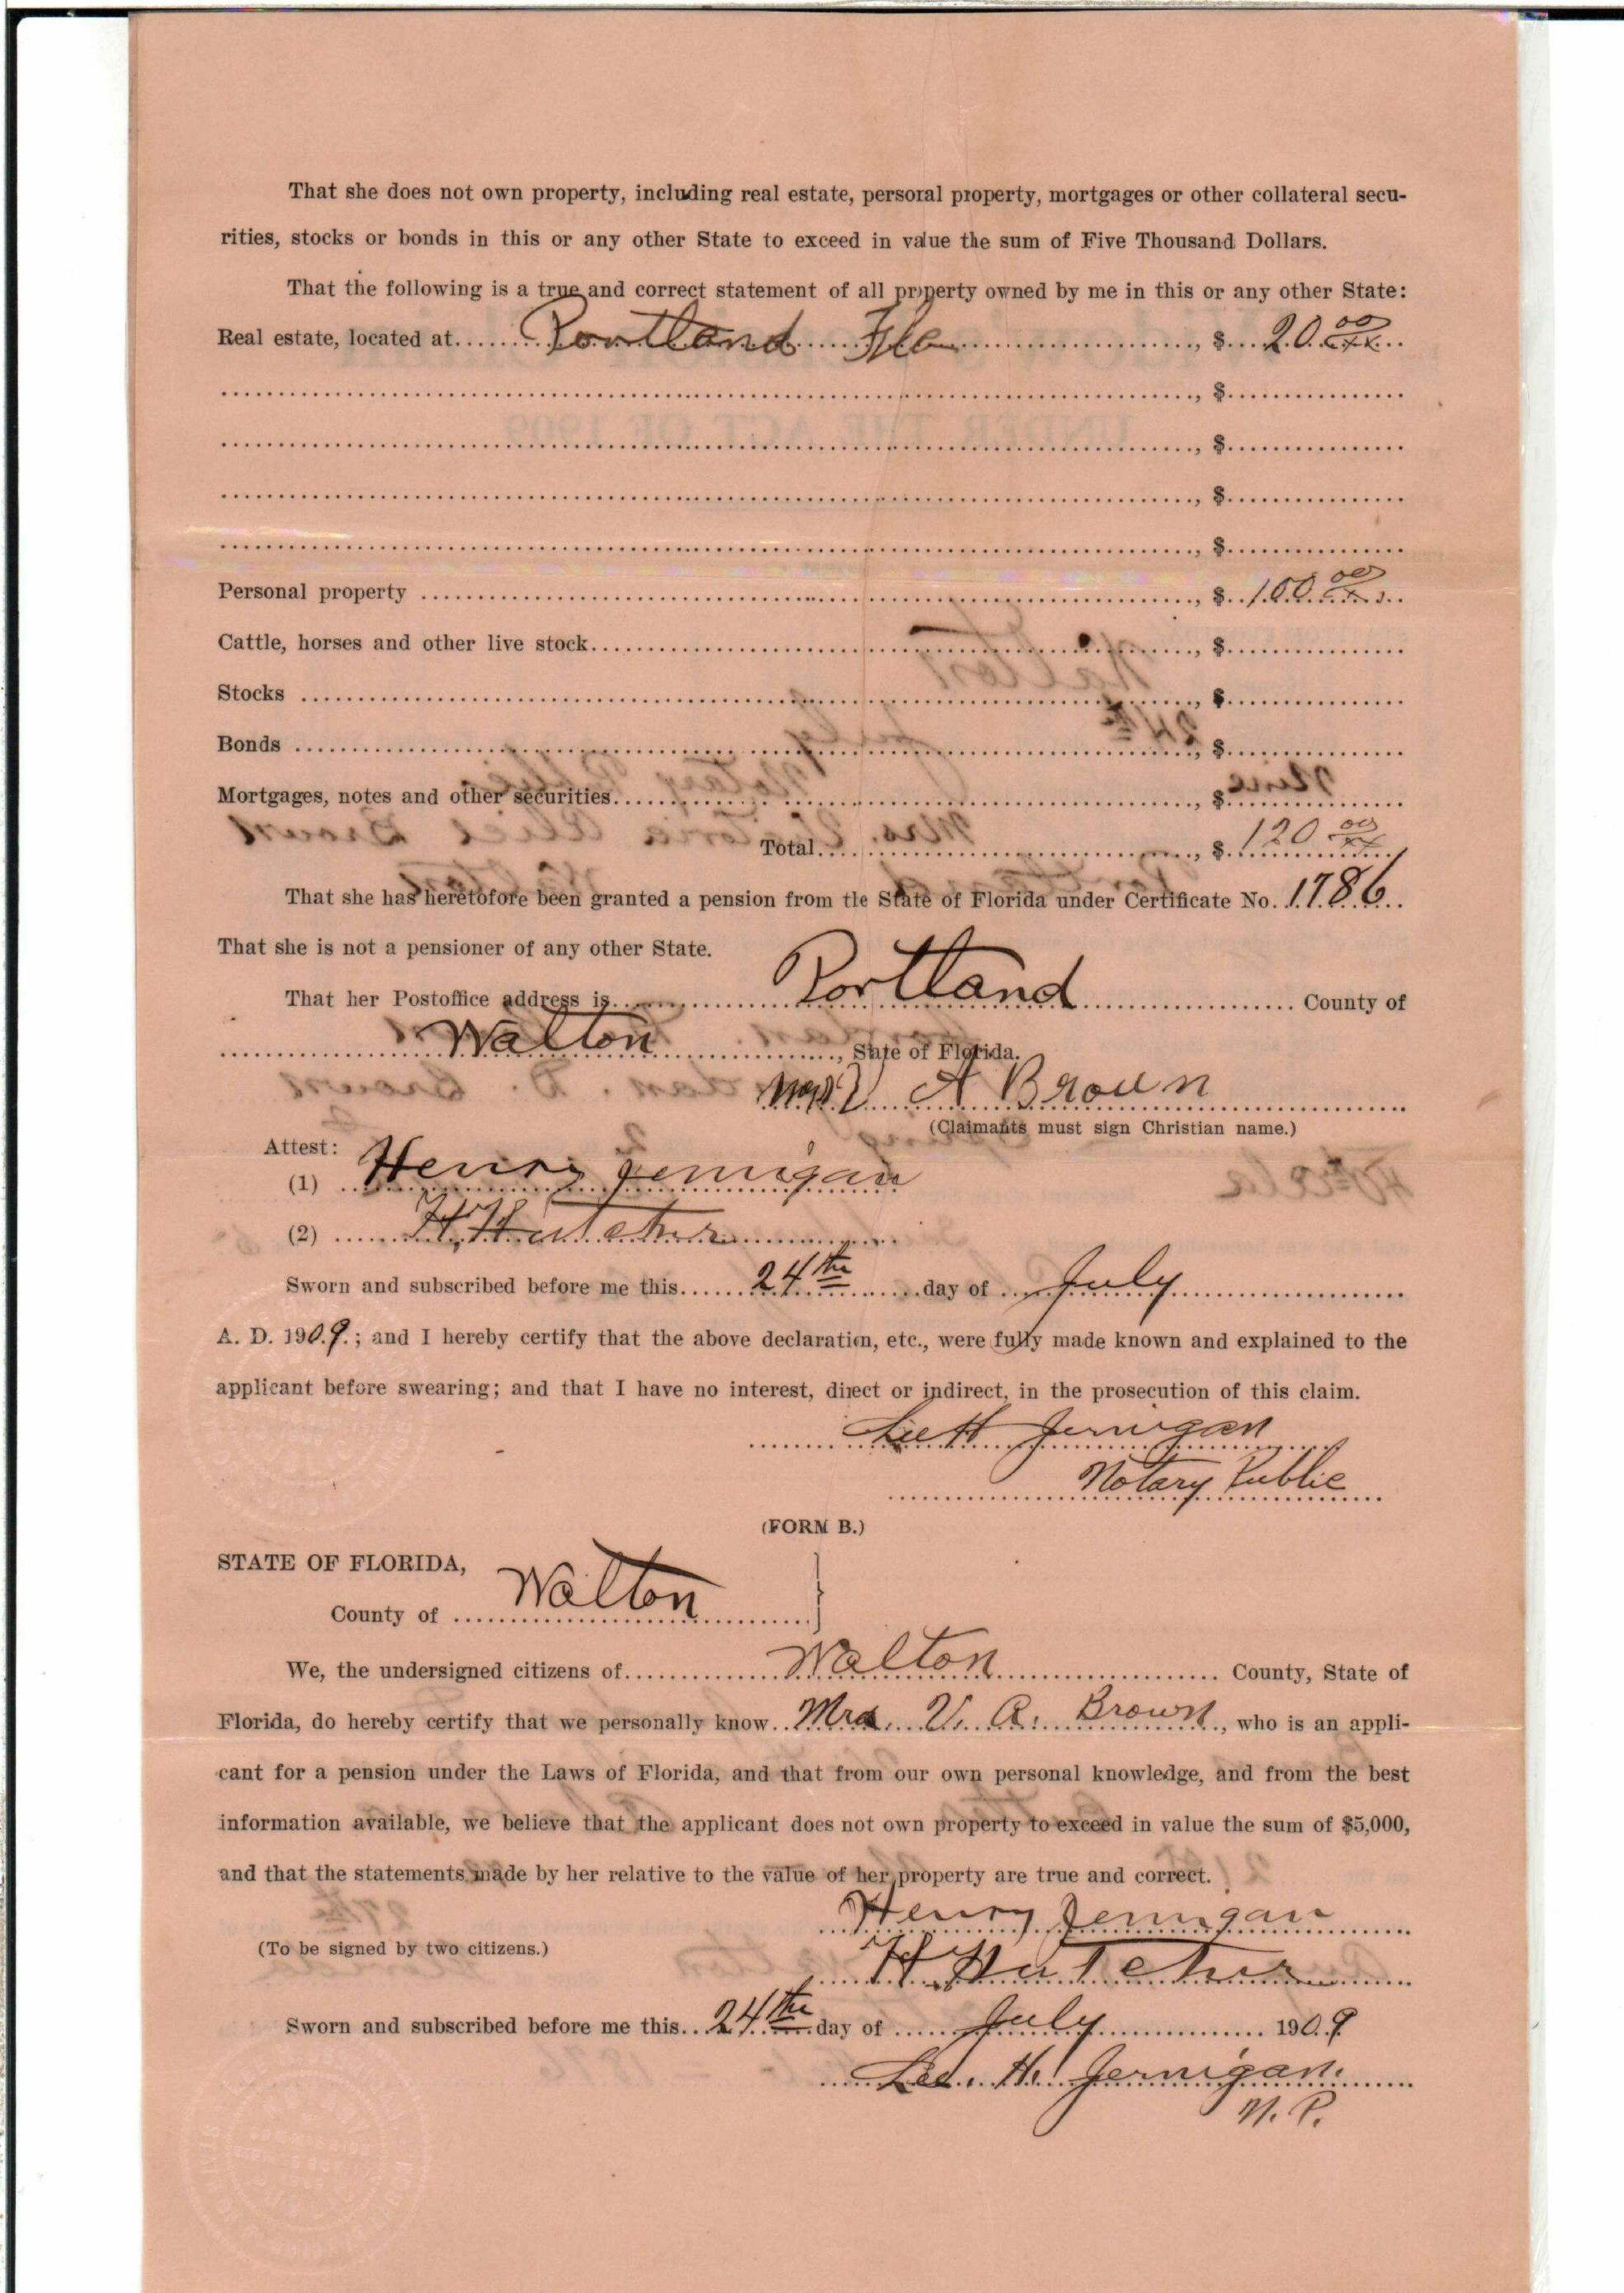 That she does not own property, including real estate, personal property, mortgages or other collateral secu-
rities, stocks or bonds in this or any other State to exceed in value the sum of Five Thousand Dollars.
That the following is a true and correct statement of all property owned by me in this or any other State:
Real estate, located at Portland Fla, $ 20 00/xx
, $
, $
, $
, $
Personal property, $ 100 00/xx
Cattle, horses and other live stock, $
Stocks, $
Bonds, $
Mortgages, notes and other securities, $
Total, $ 120 00/xx
That she has heretofore been granted a pension from the State of Florida under Certificate No. 1786
That she is not a pensioner of any other State.
That her Postoffice address is Portland County of
Walton, State of Florida.
Mrs V A Brown
(Claimants must sign Christian name.)
Attest:
(1) Henry Jernigan
(2) H. Hutcher
Sworn and subscribed before me this 24th day of July
A. D. 1909.; and I hereby certify that the above declaration, etc., were fully made known and explained to the
applicant before swearing; and that I have no interest, direct or indirect, in the prosecution of this claim.
Lee H Jernigan
Notary Public
(FORM B.)
STATE OF FLORIDA,
County of Walton
We, the undersigned citizens of Walton County, State of
Florida, do hereby certify that we personally know Mrs. V. A. Brown, who is an appli-
cant for a pension under the Laws of Florida, and that from our own personal knowledge, and from the best
information available, we believe that the applicant does not own property to exceed in value the sum of $5,000,
and that the statements made by her relative to the value of her property are true and correct.
Henry Jernigan
(To be signed by two citizens.)
H. Hutcher
Sworn and subscribed before me this 24th day of July 1909
Lee. H. Jernigan.
N. P.